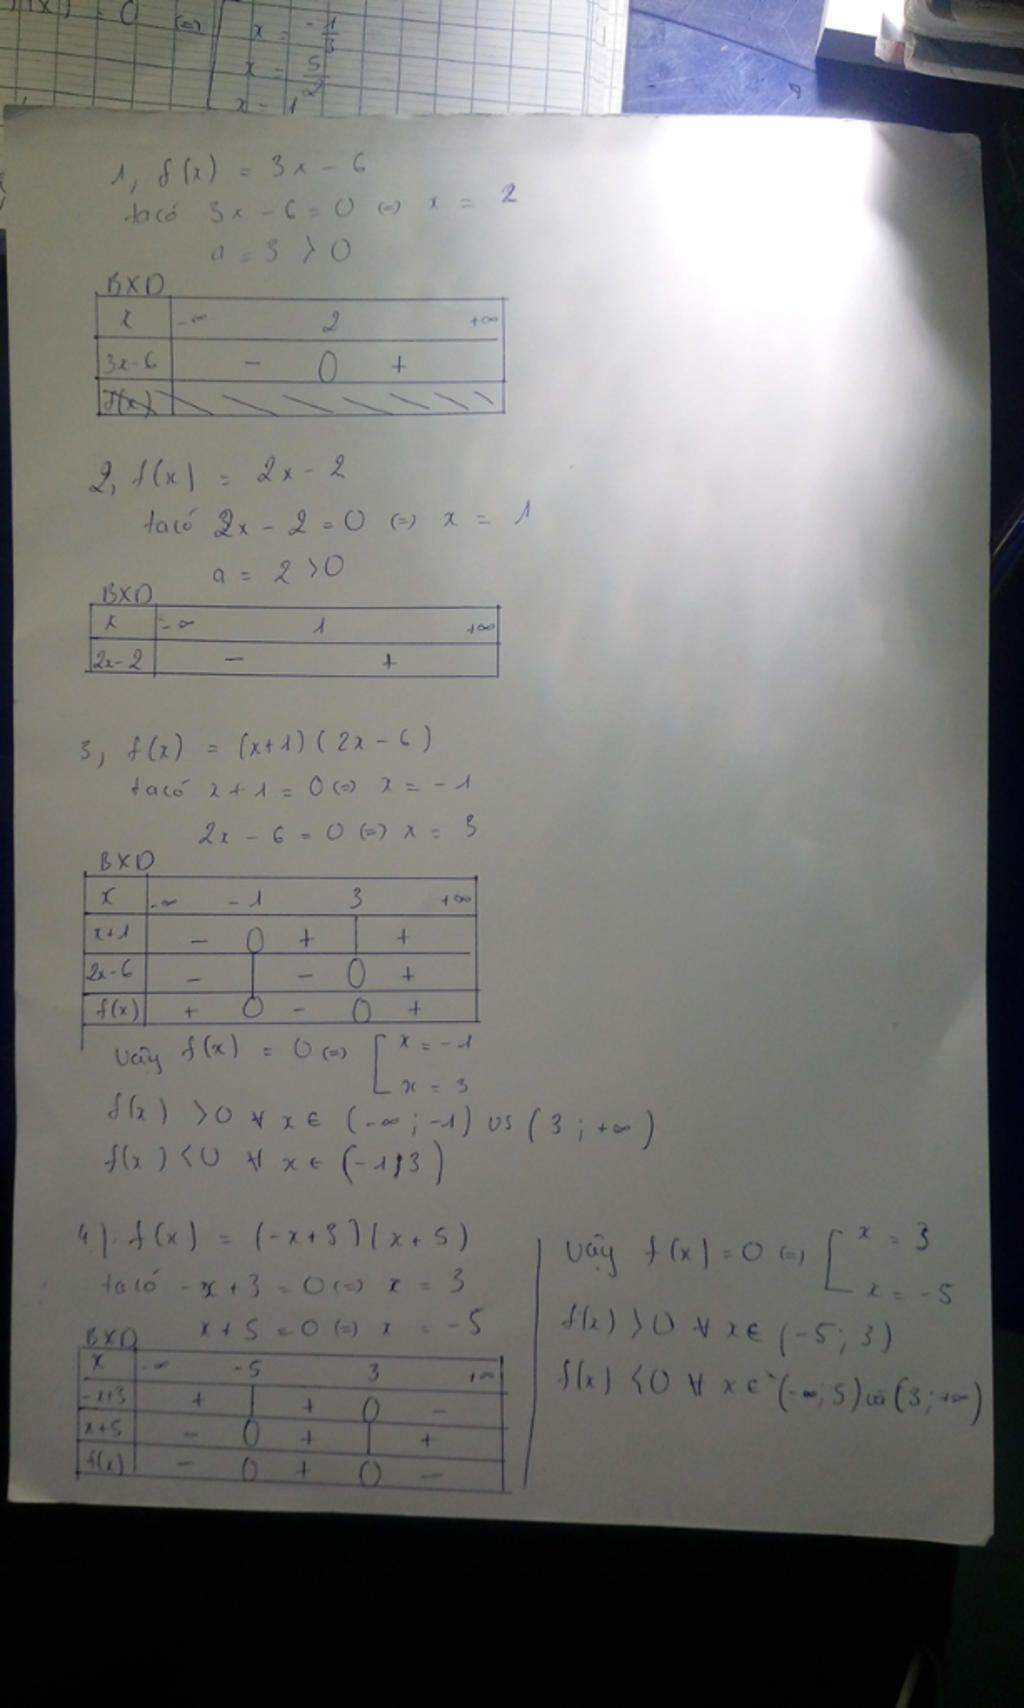 = 0 (=) x = -1/3
x = 5/2
x = 1
1, f(x) = 3x - 6
ta có 3x - 6 = 0 (=) x = 2
a = 3 > 0
BXD
x -∞ 2 +∞
3x-6 - 0 +
f(x)
2, f(x) = 2x - 2
ta có 2x - 2 = 0 (=) x = 1
a = 2 > 0
BXD
x -∞ 1 +∞
2x-2 - +
3, f(x) = (x+1)(2x-6)
ta có x + 1 = 0 (=) x = -1
2x - 6 = 0 (=) x = 3
BXD
x -∞ -1 3 +∞
x+1 - 0 + | +
2x-6 - | - 0 +
f(x) + 0 - 0 +
Vậy f(x) = 0 (=) [ x = -1
x = 3
f(x) > 0 ∀ x ∈ (-∞; -1) và (3; +∞)
f(x) < 0 ∀ x ∈ (-1;3)
4). f(x) = (-x+3)(x+5)
ta có -x + 3 = 0 (=) x = 3
x + 5 = 0 (=) x = -5
BXD
x -∞ -5 3 +∞
-x+3 + | + 0 -
x+5 - 0 + | +
f(x) - 0 + 0 -
Vậy f(x) = 0 (=) [ x = 3
x = -5
f(x) > 0 ∀ x ∈ (-5; 3)
f(x) < 0 ∀ x ∈ (-∞; 5) và (3; +∞)